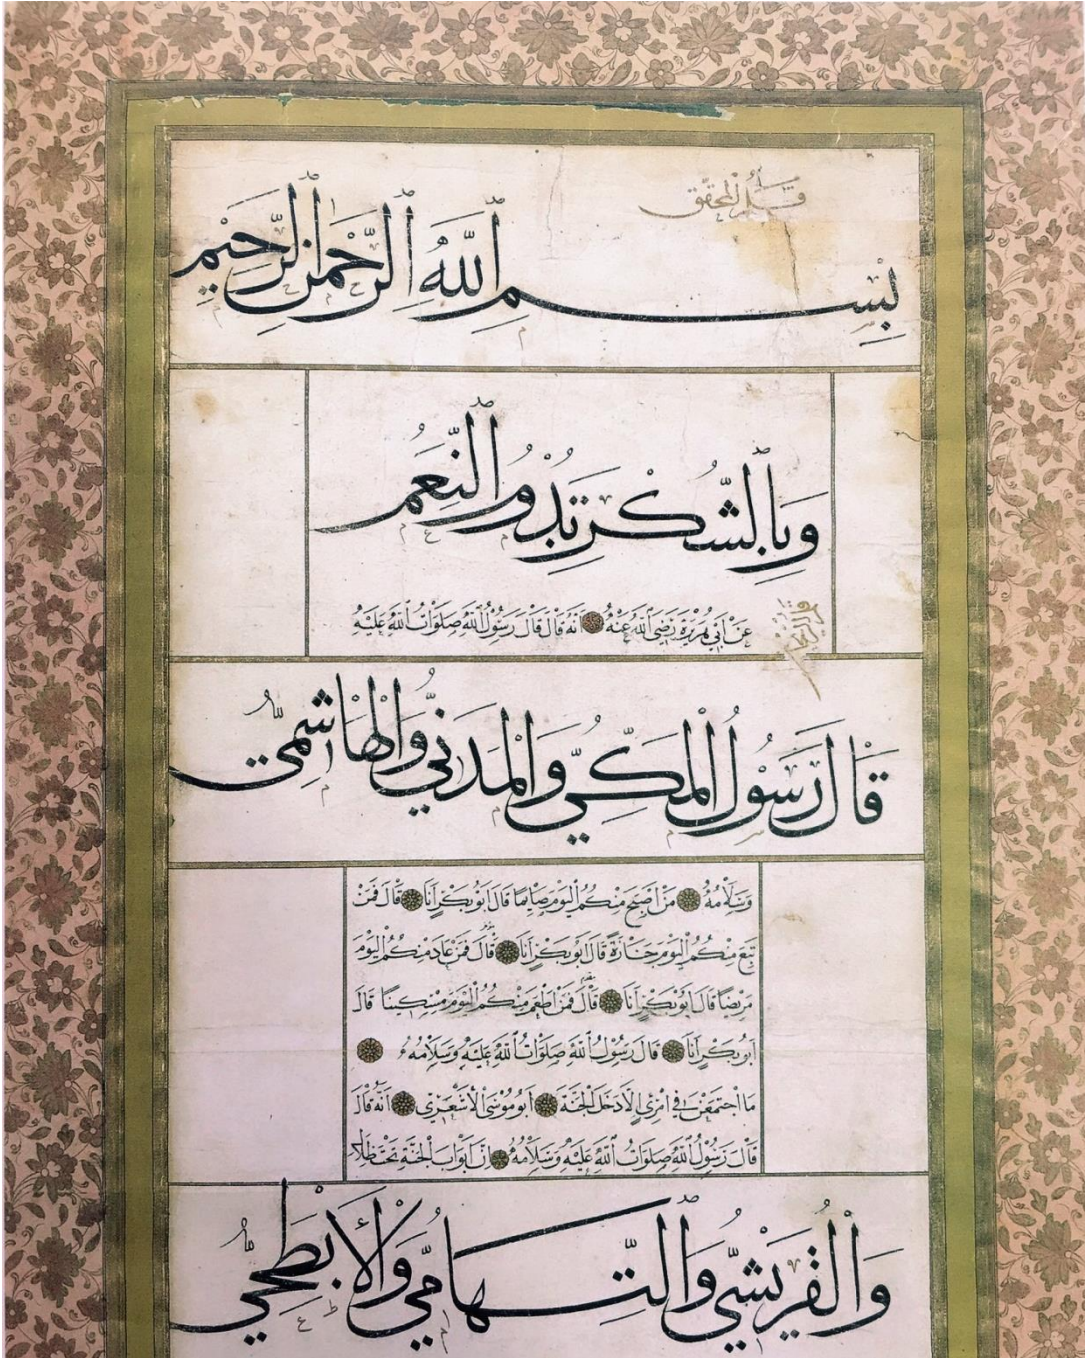 قلم المحقق
بِسْمِ ٱللَّهِ ٱلرَّحْمٰنِ ٱلرَّحِيْمِ
وَبِٱلشُّكْرِ تَدُوْمُ ٱلنِّعَمُ
عَنْ اَبِي هُرَيْرَةَ رَضِيَ ٱللَّهُ عَنْهُ اَنَّهُ قَالَ قَالَ رَسُوْلُ ٱللَّهِ صَلَوَاتُ ٱللَّهِ عَلَيْهِ
قَالَ رَسُوْلُ الْمَكِّيِّ وَالْمَدَنِيُّ وَالْهَاشِمِيُّ
وَسَلَامُهُ مَنْ اَصْبَحَ مِنْكُمُ الْيَوْمَ صَايِمًا قَالَ اَبُوْ بَكْرٍ اَنَا قَالَ فَمَنْ
تَبِعَ مِنْكُمُ الْيَوْمَ جَنَازَةً قَالَ اَبُوْ بَكْرٍ اَنَا قَالَ فَمَنْ عَادَ مِنْكُمُ الْيَوْمَ
مَرِيْضًا قَالَ اَبُوْ بَكْرٍ اَنَا قَالَ فَمَنْ اَطْعَمَ مِنْكُمُ الْيَوْمَ مِسْكِيْنًا قَالَ
اَبُوْ بَكْرٍ اَنَا قَالَ رَسُوْلُ ٱللَّهِ صَلَوَاتُ ٱللَّهِ عَلَيْهِ وَسَلَامُهُ
مَا اجْتَمَعْنَ فِي امْرِئٍ اِلَّا دَخَلَ الْجَنَّةَ اَبُوْ مُوْسَى الْاَشْعَرِيّ اَنَّهُ قَالَ
قَالَ رَسُوْلُ ٱللَّهِ صَلَوَاتُ ٱللَّهِ عَلَيْهِ وَسَلَامُهُ اِنَّ اَبْوَابَ الْجَنَّةِ تَحْتَ ظِلَالِ
وَالْقُرَيْشِيِّ وَٱلتِّهَامِيِّ وَالْاَبْطَحِيِّ